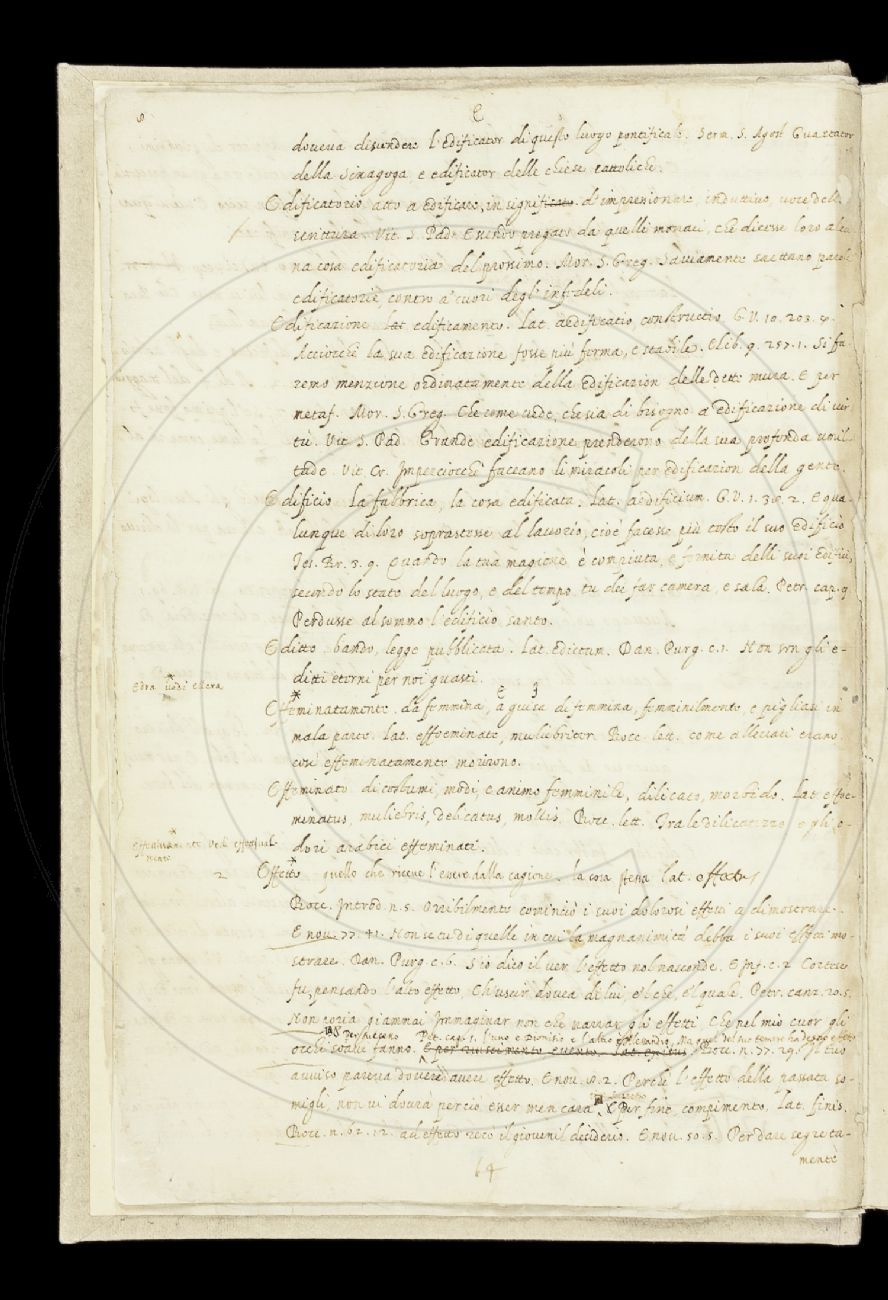 8
E
doueua discendere l'edificator di questo luogo pontificale. Serm. S. Agost Guastator
della Sinagoga e edificator delle chiese cattoliche.
Edificatorio atto a edificare, in signific. d'impressionare, induttiuo, uoce dell
scrittura. Vit. S. Pad. Essendo pregato da quelli monaci, che dicesse loro alcu
na cosa edificatoria del prossimo. Mor. S. Greg. Sauiamente saettano parole
edificatorie, contro a' cuori degl'infedeli.
Edificazione lat. edificamento. Lat. aedificatio, constructio. G.V. 10. 203. 4.
Acciocchè la sua edificazione fosse più ferma, e stabile. E lib. 9. 257. 1. Si fa-
remo menzione ordinatamente della edificazion delle dette mura. E per
metaf. Mor. S. Greg. Che come uede, che sia di bisogno a edificazione di uir
tù. Vit. S. Pad. Grande edificazione prenderono della sua profonda umil-
tade. Vit. Cr. Imperciocchè faceano li miracoli per edificazion della gente.
Edificio la fabbrica, la cosa edificata. Lat. aedificium. G.V. 1. 38. 2. E qua-
lunque di loro soprastesse al lauorio, cioè facesse più tosto il suo edificio
Tes. Br. 3. 9. Quando la tua magione è compiuta, e fornita delli suoi edifici,
secondo lo stato del luogo, e del tempo, tu dei far camera, e sala. Petr. cap. 9
Perdusse al sommo l'edificio santo.
Editto bando, legge pubblicata. Lat. edictum. Dan. Purg. c. 1. Non son gli e-
ditti eterni per noi guasti.
Edra uedi ellera
Effeminatamente da femmina, a guisa di femmina, femminilmente, e pigliasi in
mala parte. Lat. effoeminate, muliebriter. Bocc. lett. come alleuati erano,
così effeminatamente morirono.
Effeminato di costumi, modi, e animo femminile, dilicato, morbido. Lat. effoe-
minatus, muliebris, delicatus, mollis. Bocc. lett. Tra le dilicatezze e gli o-
dori arabici effeminati.
Effettiuamente Vedi effettual
mente
2 Effetto quello che riceue l'essere dalla cagione. la cosa stessa lat. effectus
Bocc. Introd. n. 5. Orribilmente cominciò i suoi dolorosi effetti a dimostrare.
E nou. 77. 41. Non se tu di quelle in cui la magnanimità debba i suoi effetti mo-
strare. Dan. Purg. c. 6. S'io dico il uer l'effetto nol nasconde. E Inf. c. 2 Cortese
fu, pensando l'alto effetto, Ch'uscir douea di lui, e'l chi, e'l quale. Petr. canz. 20. 5.
Non poria giammai Immaginar non che narrar gli effetti, Che nel mio cuor gli
Petr. cap. 1. l'uno è Dionisio e l'altro è Alessandro, Ma quel del suo temere ha degno effetto
occhi soaui fanno. E per riuscimento euento. Lat. Bocc. n. 77. 29. Il tuo
auuiso pareua douere auere effetto. E nou. 82. Perchè l'effetto della passata so-
migli, non ui dourà perciò esser men cara. E Per fine, compimento. Lat. finis.
Bocc. n. 62. 12. ad effetto recò il giouenil desiderio. E nou. 50. 5. Per dare segreta-
mente
64